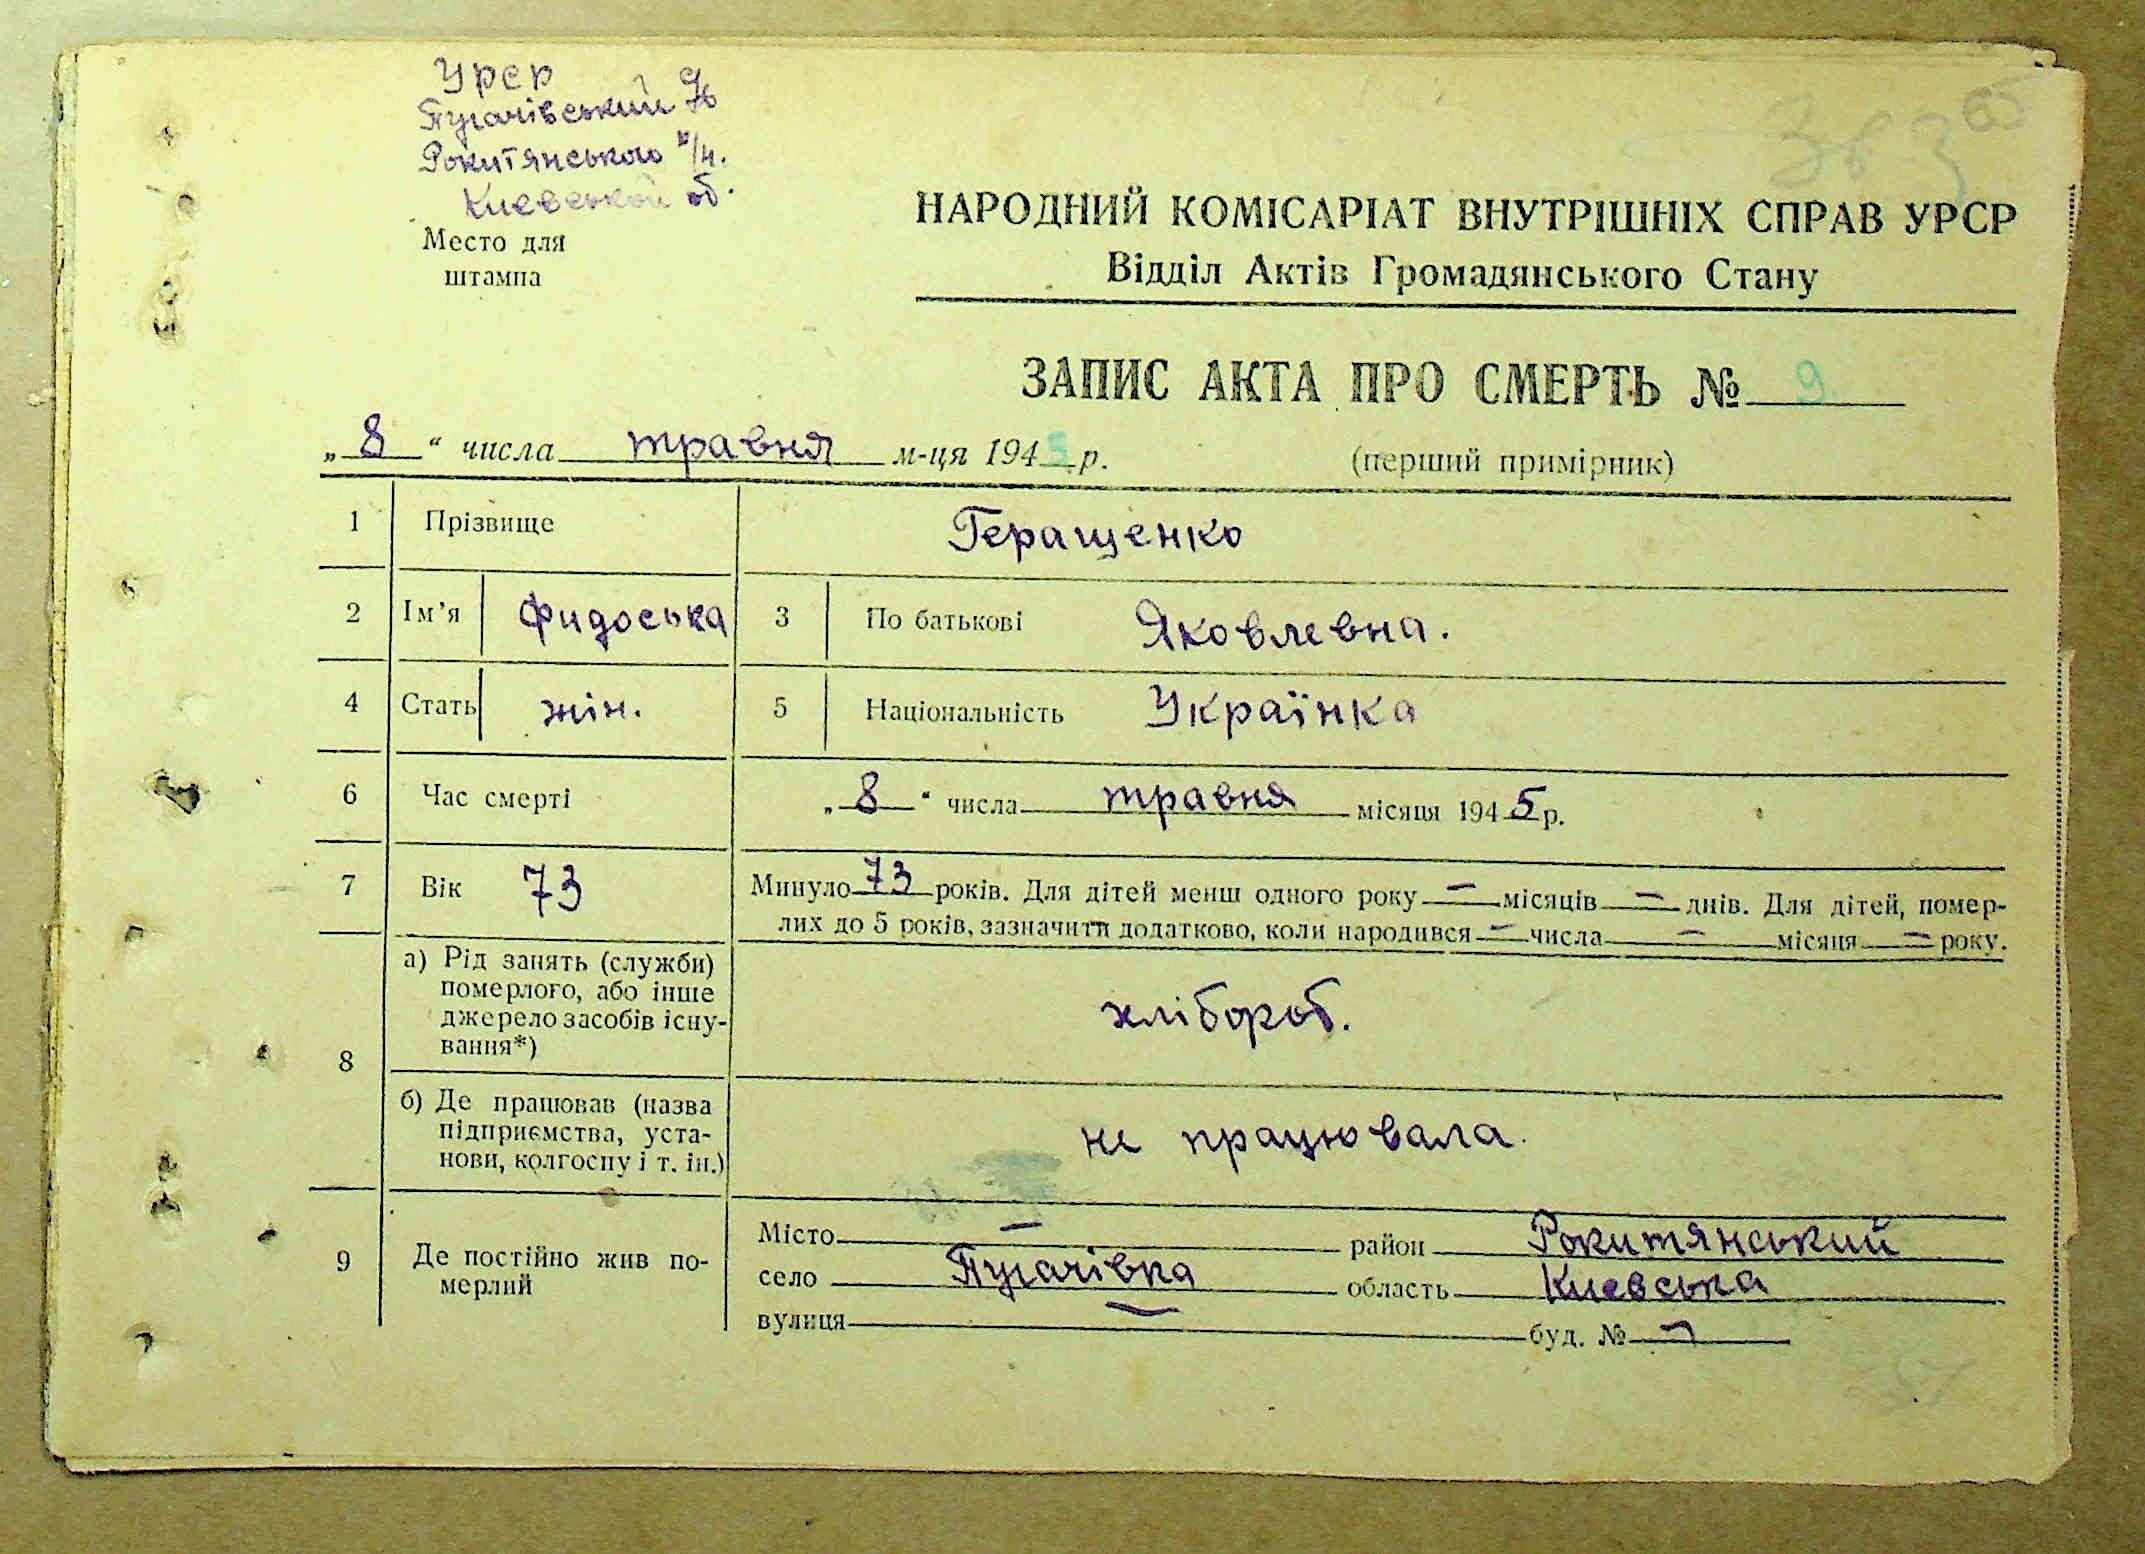 УРСР
Пугачівський
Рокитянського
Киевської об.
Место для
штампа
65
НАРОДНИЙ КОМІСАРІАТ ВНУТРІШНІХ СПРАВ УРСР
Відділ Актів Громадянського Стану
ЗАПИС АКТА ПРО СМЕРТЬ № 9
„ 8 “ числа травня м-ця 1945 р.
(перший примірник)
1 Прізвище Геращенко
2 Ім’я Фидоська 3 По батькові Яковлевна.
4 Стать жін. 5 Національність Українка
6 Час смерті „ 8 “ числа травня місяця 1945 р.
7 Вік 73 Минуло 73 років. Для дітей менш одного року — місяців — днів. Для дітей, помер-
лих до 5 років, зазначити додатково, коли народився — числа — місяця — року.
8
а) Рід занять (служби)
померлого, або інше
джерело засобів існу-
вання*)
хлібороб.
б) Де працював (назва
підприємства, уста-
нови, колгоспу і т. ін.)
не працювала.
9 Де постійно жив по-
мерлий
Місто — район Рокитянський
село Пугачівка область Киевська
вулиця — буд. № —